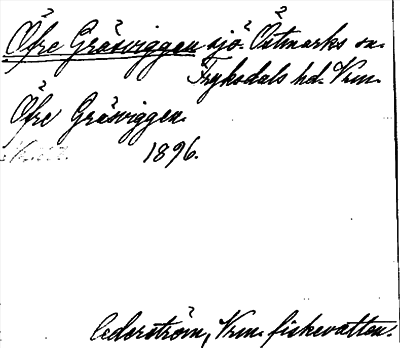 Öfre Gräsviggen sjö. Östmarks sn.
Fryksdals hd. Vrm.
Öfre Gräsviggen.
1896.
Cederström, Vrm. fiskevatten.